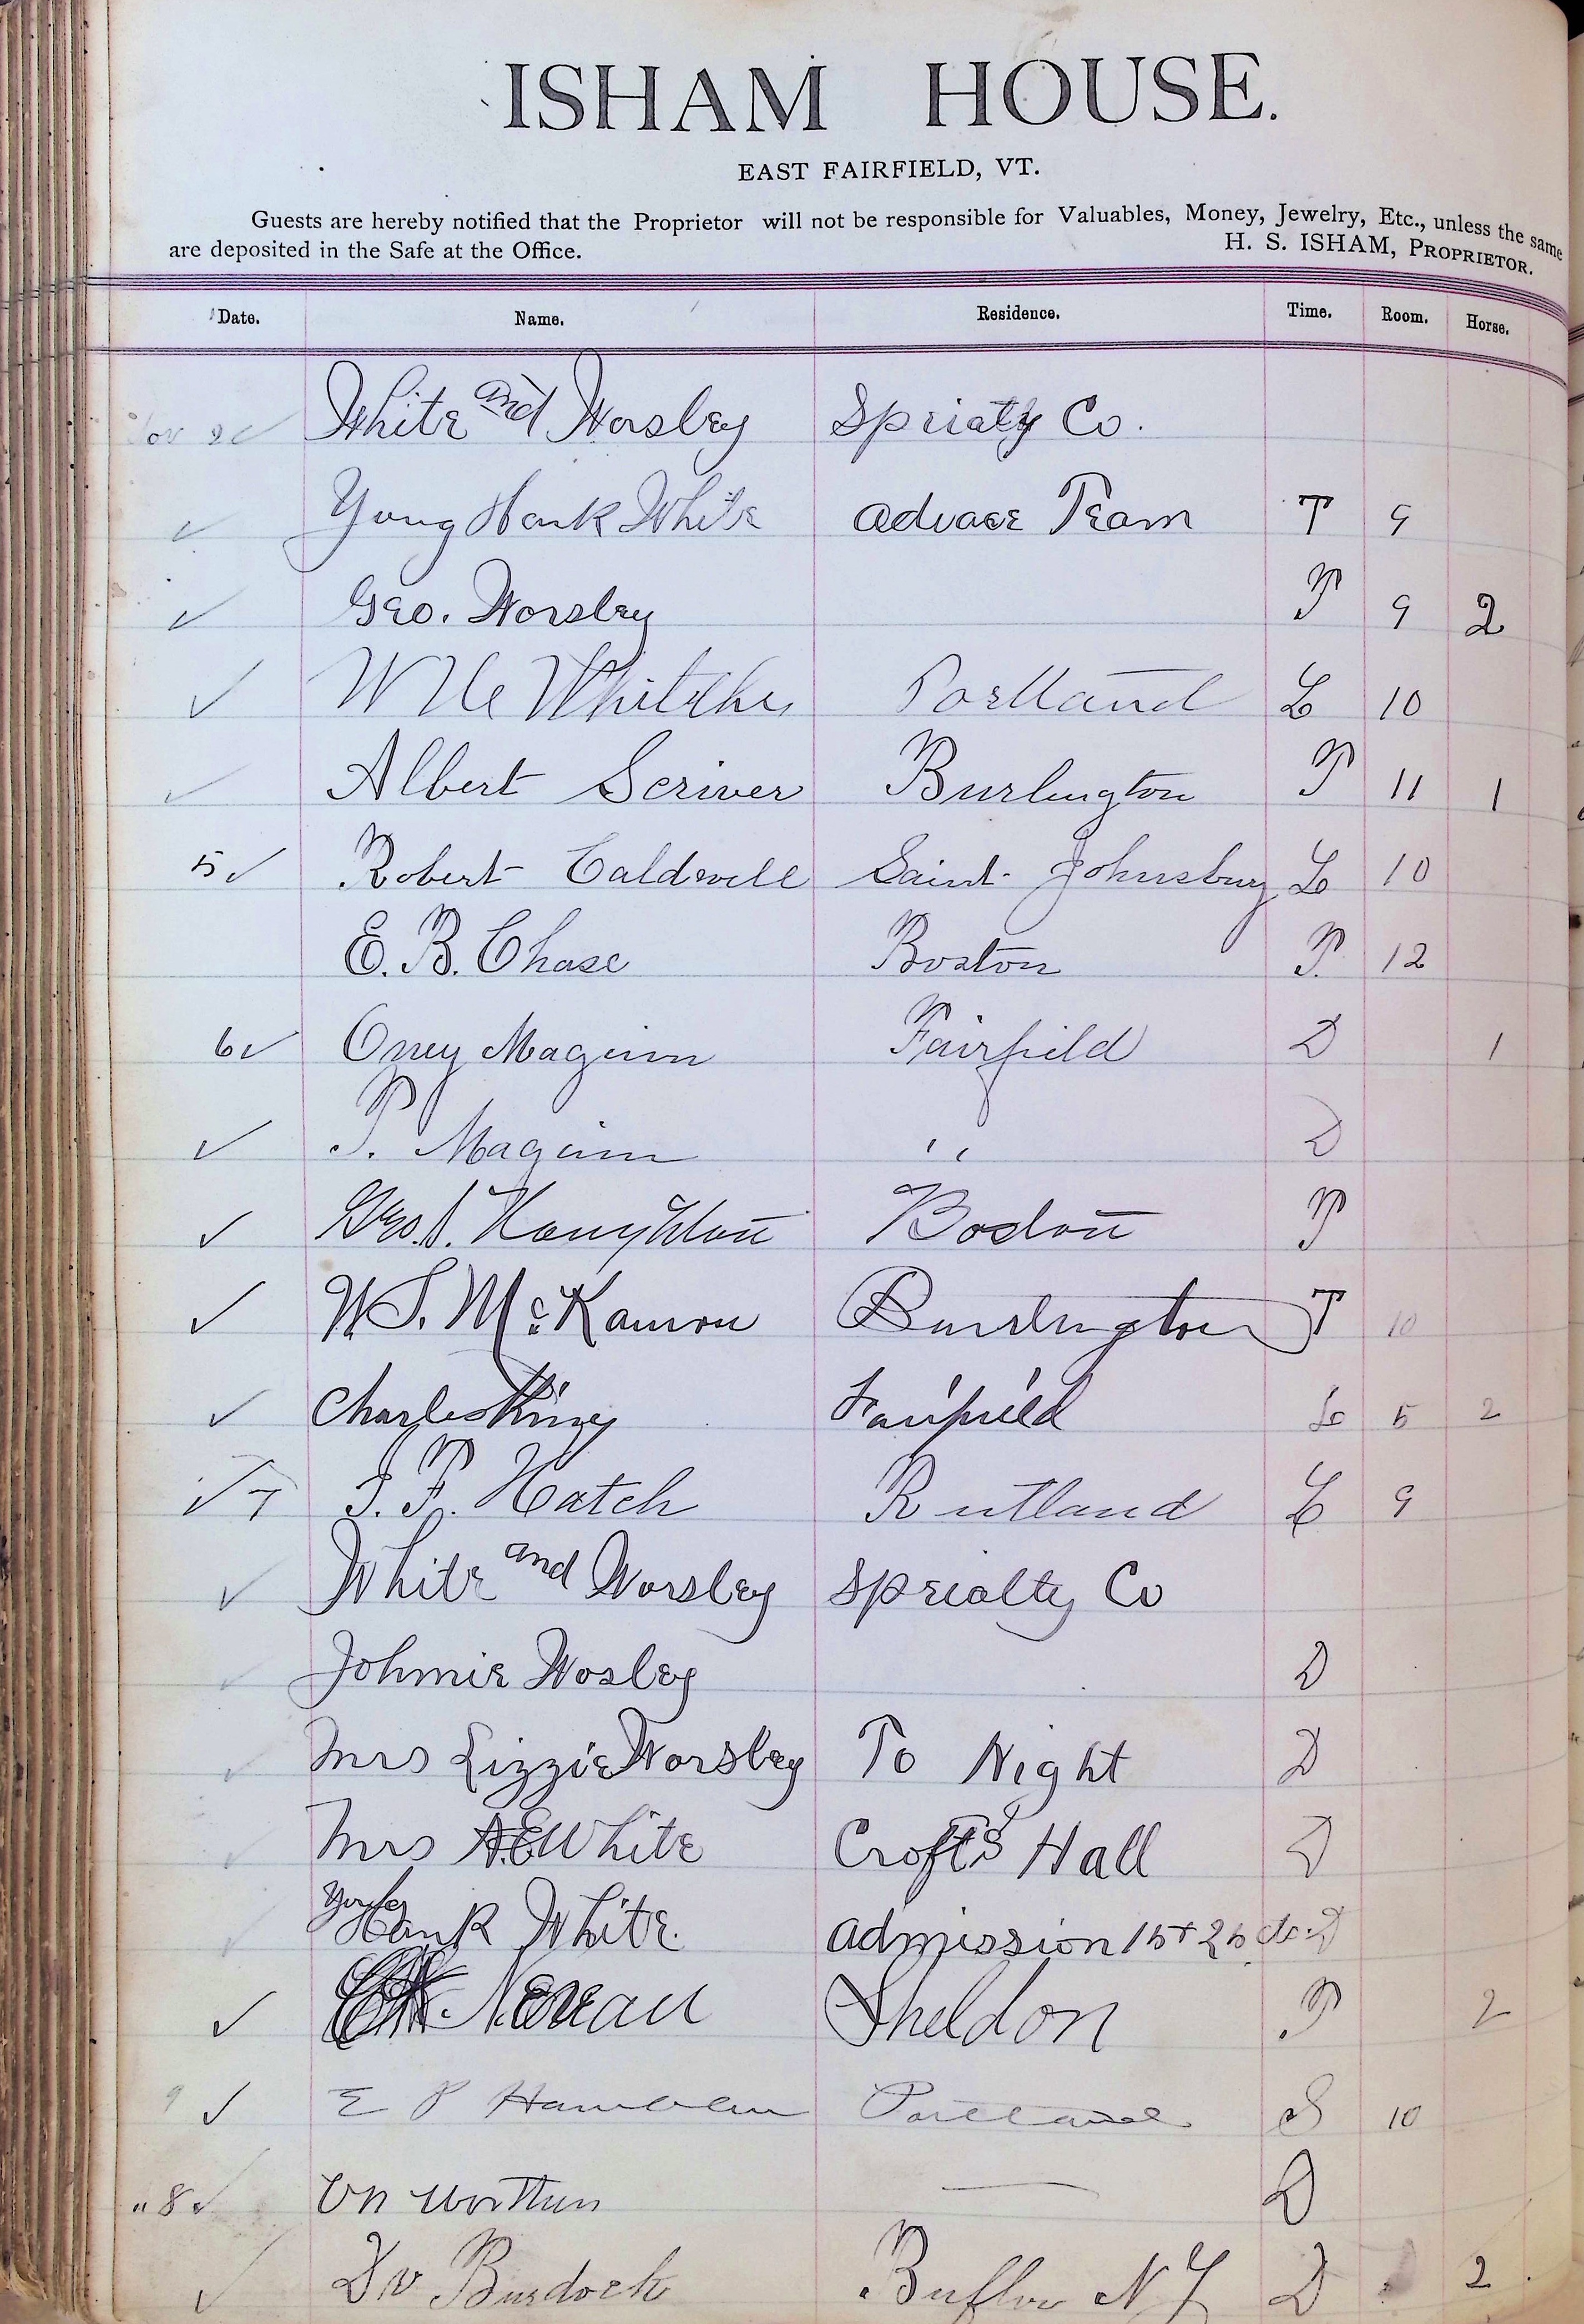 ISHAM HOUSE.
EAST FAIRFIELD, VT.
Guests are hereby notified that the Proprietor will not be responsible for Valuables, Money, Jewelry, Etc., unless the same
are deposited in the Safe at the Office. H. S. ISHAM, PROPRIETOR.
Date. Name. Residence. Time. Room. Horse.
✓ White and Worsley Spriaty Co.
✓ Yung Hank White advace Team T 9
✓ Geo. Worsley P 9 2
✓ W Portland L 10
✓ Albert Scriver Burlington P 11 1
5 ✓ Robert Caldwell Saint Johnsbury L 10
E. B. Chase Boston P 12
6 ✓ Oney Maginn Fairfield D 1
✓ P. Maginn " D
✓ Geo. S. Houghton Boston P
✓ W. S. McKannon Burlington T 10
✓ Charles King Fairfield L 5 2
✓ 7 F. Hatch Rutland L 9
✓ White and Worsley Sprialty Co
✓ Johnnie Wosley D
✓ Mrs Lizzie Worsley To Night D
✓ Mrs White Crofts Hall D
✓ Hank White. admission 15 + 25 cts D
✓ Sheldon P 2
9 ✓ E P Portland S 10
" 8 ✓ Worthen — D
✓ Dr Burdock Bufflo N Y D 2